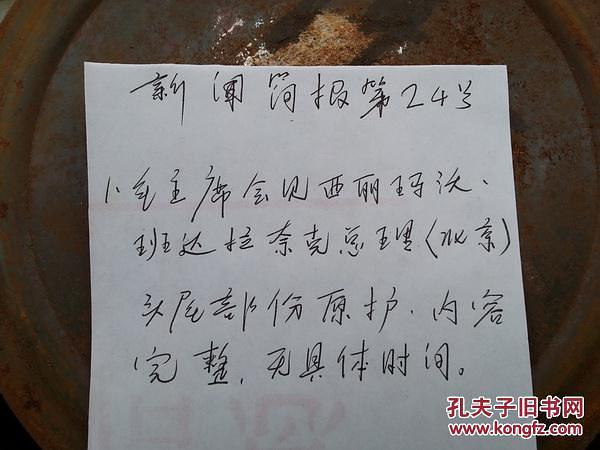 新闻简报第24号
1、毛主席会见西丽玛沃、
班达拉奈克总理（北京）
头尾部份原护、内容
完整，无具体时间。
孔夫子旧书网
www.kongfz.com